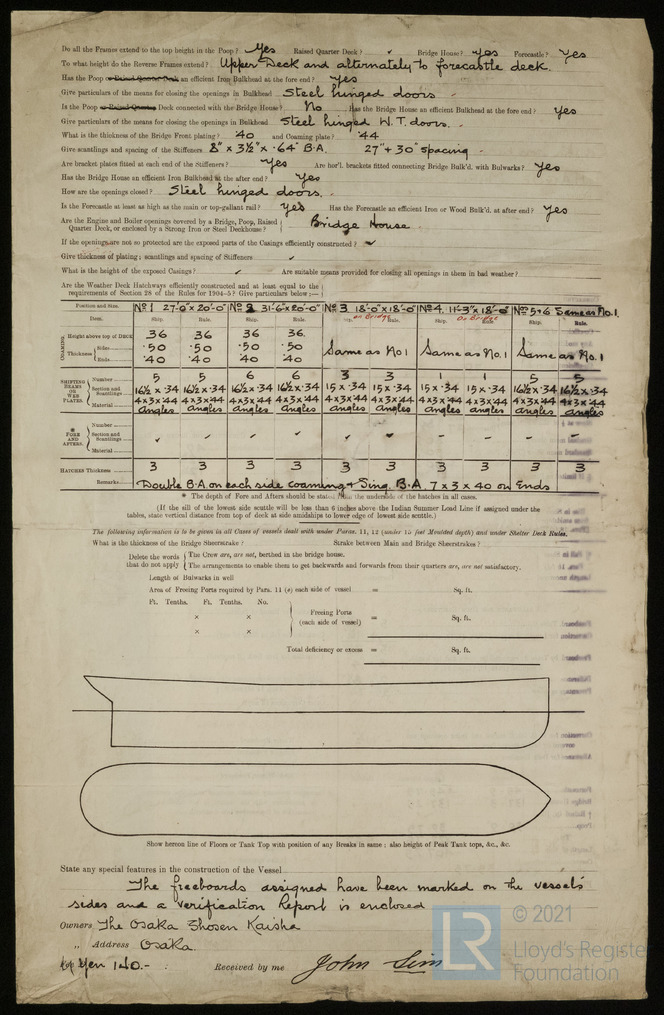 Do all the Frames extend to the top height in the Poop? Yes Raised Quarter Deck? ✓ Bridge House? Yes Forecastle? Yes
To what height do the Reverse Frames extend? Upper Deck and alternately to forecastle deck.
Has the Poop or Raised Quarter Deck an efficient Iron Bulkhead at the fore end? Yes
Give particulars of the means for closing the openings in Bulkhead Steel hinged doors
Is the Poop or Raised Quarter Deck connected with the Bridge House? No Has the Bridge House an efficient Bulkhead at the fore end? Yes
Give particulars of the means for closing the openings in Bulkhead Steel hinged W.T. doors.
What is the thickness of the Bridge Front plating? .40 and Coaming plate? .44
Give scantlings and spacing of the Stiffeners 8" x 3½" x .64" B.A. 27" + 30" spacing
Are bracket plates fitted at each end of the Stiffeners? Yes Are hor'l. brackets fitted connecting Bridge Bulk'd. with Bulwarks? Yes
Has the Bridge House an efficient Iron Bulkhead at the after end? Yes
How are the openings closed? Steel hinged doors.
Is the Forecastle at least as high as the main or top-gallant rail? Yes Has the Forecastle an efficient Iron or Wood Bulk'd. at after end? Yes
Are the Engine and Boiler openings covered by a Bridge, Poop, Raised
Quarter Deck, or enclosed by a Strong Iron or Steel Deckhouse? Bridge House
If the openings are not so protected are the exposed parts of the Casings efficiently constructed? ✓
Give thickness of plating; scantlings and spacing of Stiffeners ✓
What is the height of the exposed Casings? ✓ Are suitable means provided for closing all openings in them in bad weather?
Are the Weather Deck Hatchways efficiently constructed and at least equal to the
requirements of Section 28 of the Rules for 1904-5? Give particulars below:—
Position and Size. No 1 27'-6" x 20'-0" No 2 31'-6" x 20'-0" No 3 18'-0" x 18'-0" No 4. 11'-3" x 18'-0" Nos 5+6 Same as No. 1.
on Bridge On Bridge
Item. Ship. Rule. Ship. Rule. Ship. Rule. Ship. Rule. Ship. Rule.
COAMING Height above top of DECK 36 36 36 36.
Thickness Sides .50 .50 .50 .50 Same as No 1 Same as No. 1 Same as No. 1
Ends .40 .40 .40 .40
SHIFTING BEAMS OR WEB PLATES Number 5 5 6 6 3 3 1 1 5 5
Section and Scantlings 16½ x .34 16½ x .34 16½ x .34 16½ x .34 15 x .34 15 x .34 15 x .34 15 x .34 16½ x .34 16½ x .34
4x3x.44 4x3x.44 4x3x.44 4x3x.44 4x3x.44 4x3x.44 4x3x.44 4x3x.44 4x3x.44 4x3x.44
Material angles angles angles angles angles angles angles angles angles angles
* FORE AND AFTERS. Number
Section and Scantlings
Material
HATCHES Thickness 3 3 3 3 3 3 3 3 3 3
Remarks Double B.A on each side coaming + Sing. B.A 7 x 3 x 40 on Ends
* The depth of Fore and Afters should be stated from the underside of the hatches in all cases.
(If the sill of the lowest side scuttle will be less than 6 inches above the Indian Summer Load Line if assigned under the
tables, state vertical distance from top of deck at side amidships to lower edge of lowest side scuttle.)
The following information is to be given in all Cases of vessels dealt with under Paras. 11, 12 (under 15 feet Moulded depth) and under Shelter Deck Rules.
What is the thickness of the Bridge Sheerstrake? Strake between Main and Bridge Sheerstrakes?
Delete the words that do not apply The Crew are, are not, berthed in the bridge house.
The arrangements to enable them to get backwards and forwards from their quarters are, are not satisfactory.
Length of Bulwarks in well
Area of Freeing Ports required by Para. 11 (e) each side of vessel = Sq. ft.
Ft. Tenths. Ft. Tenths. No.
× Freeing Ports
(each side of vessel) = Sq. ft.
×
Total deficiency or excess = Sq. ft.
Show hereon line of Floors or Tank Top with position of any Breaks in same; also height of Peak Tank tops, &c., &c.
State any special features in the construction of the Vessel
The freeboards assigned have been marked on the vessel's
sides and a verification Report is enclosed
Owners The Osaka Shosen Kaisha
„ Address Osaka.
Yen 140.- : Received by me John Sim
LR
© 2021
Lloyd's Register
Foundation